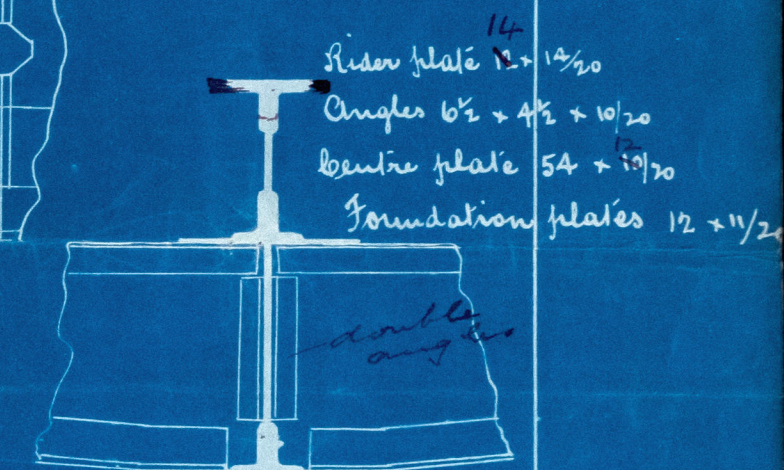 14
Rider plate 12 x 14/20
Angles 6½ x 4½ x 10/20
12
Centre plate 54 x 10/20
Foundation plates 12 x 11/20
double
angles